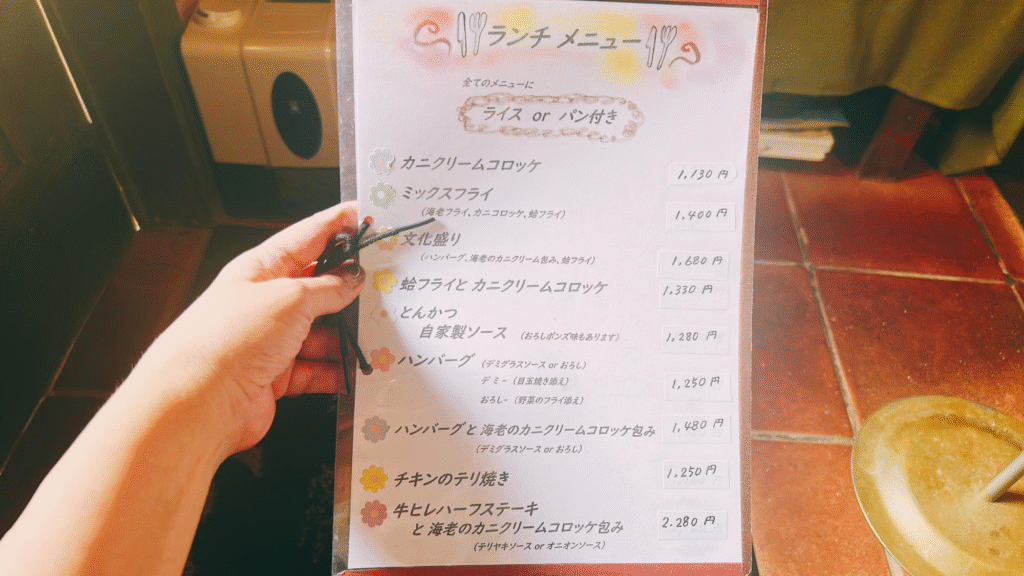 ランチ メニュー
全てのメニューに
ライス or パン付き
カニクリームコロッケ 1,130円
ミックスフライ
(海老フライ、カニコロッケ、蛤フライ) 1,400円
文化盛り
(ハンバーグ、海老のカニクリーム包み、蛤フライ) 1,680円
蛤フライと カニクリームコロッケ 1,330円
とんかつ
自家製ソース (おろしポンズ味もあります) 1,280円
ハンバーグ (デミグラスソース or おろし)
デミ- (目玉焼き添え) 1,250円
おろし- (野菜のフライ添え)
ハンバーグと 海老のカニクリームコロッケ包み 1,480円
(デミグラスソース or おろし)
チキンのテリ焼き 1,250円
牛ヒレハーフステーキ
と 海老のカニクリームコロッケ包み 2.280円
(テリヤキソース or オニオンソース)